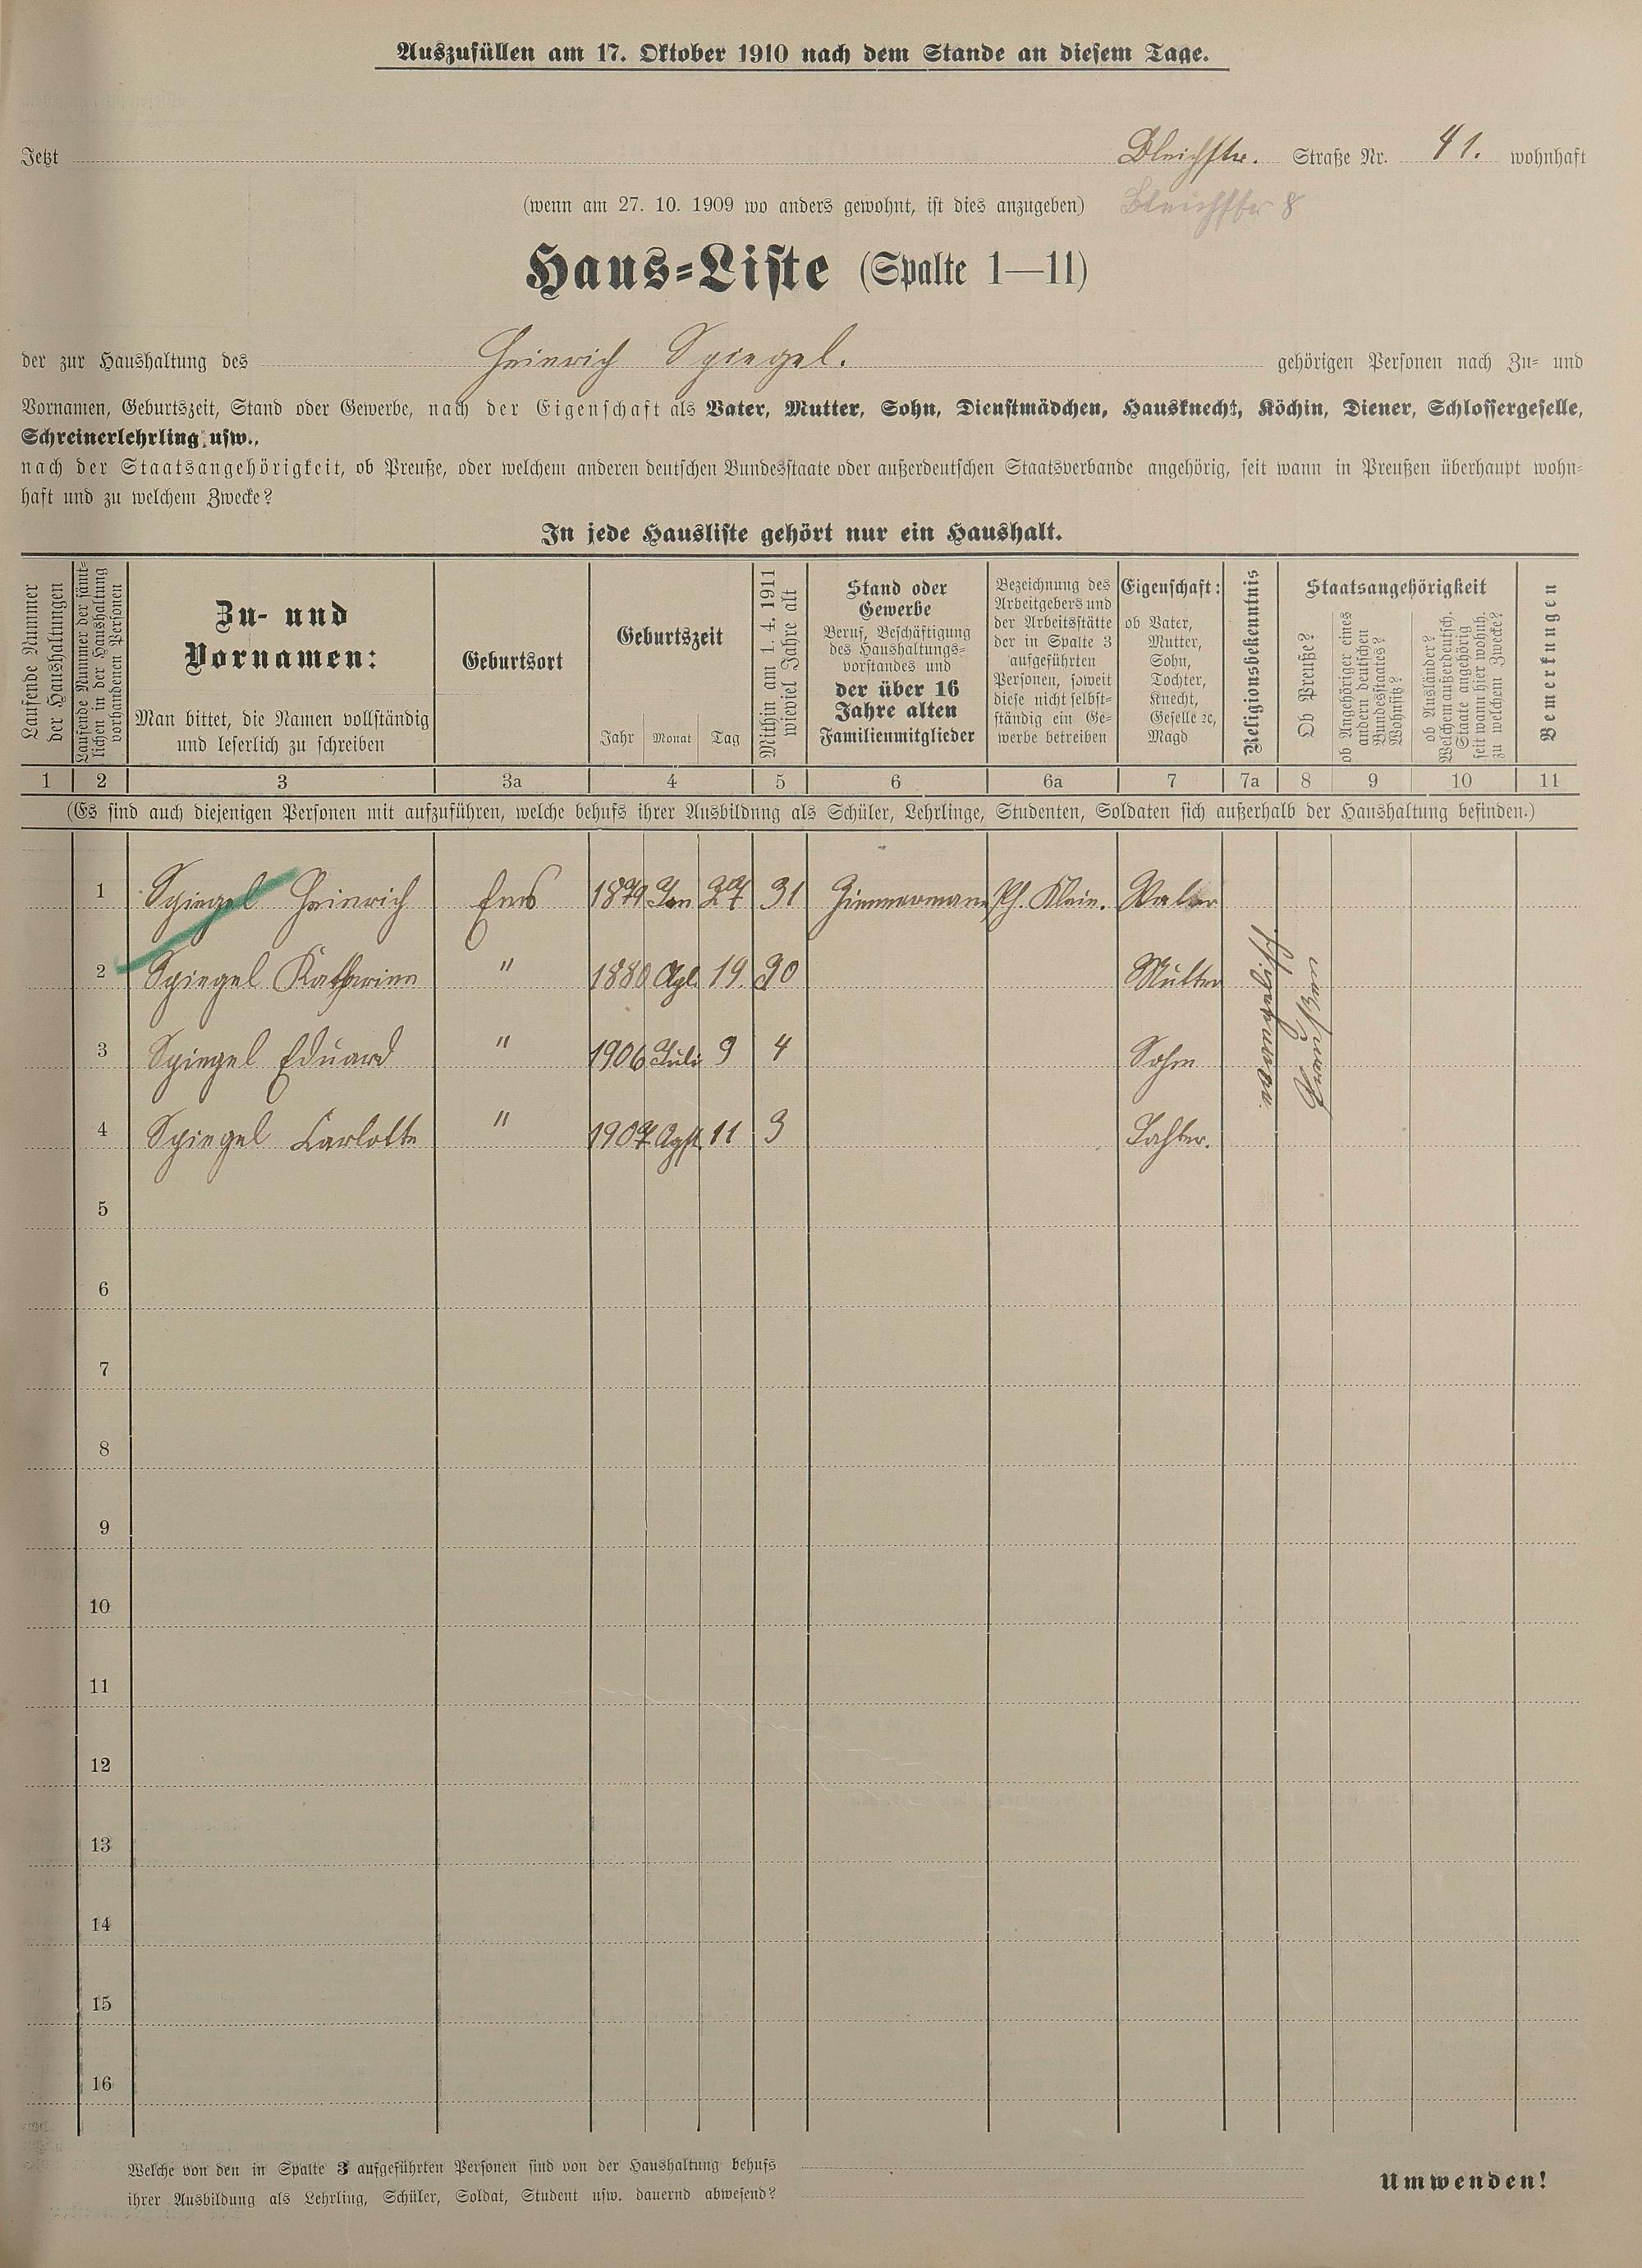 Auszufüllen am 17. Oktober 1910 nach dem Stande an diesem Tage.
Jetzt Bleichstr. Straße Nr. 41. wohnhaft
(wenn am 27. 10. 1909 wo anders gewohnt, ist dies anzugeben) Bleichstr 8
Haus-Liste (Spalte 1—11)
der zur Haushaltung des Heinrich Spiegel. gehörigen Personen nach Zu- und
Vornamen, Geburtszeit, Stand oder Gewerbe, nach der Eigenschaft als Vater, Mutter, Sohn, Dienstmädchen, Hausknecht, Köchin, Diener, Schlossergeselle,
Schreinerlehrling usw.,
nach der Staatsangehörigkeit, ob Preuße, oder welchem anderen deutschen Bundesstaate oder außerdeutschen Staatsverbande angehörig, seit wann in Preußen überhaupt wohn-
haft und zu welchem Zwecke?
In jede Hausliste gehört nur ein Haushalt.
Laufende Nummer
der Haushaltungen
Laufende Nummer der sämt-
lichen in der Haushaltung
vorhandenen Personen
Zu- und
Vornamen:
Man bittet, die Namen vollständig
und leserlich zu schreiben
Geburtsort
Geburtszeit
Jahr Monat Tag
Mithin am 1. 4. 1911
wieviel Jahre alt
Stand oder
Gewerbe
Beruf, Beschäftigung
des Haushaltungs-
vorstandes und
der über 16
Jahre alten
Familienmitglieder
Bezeichnung des
Arbeitgebers und
der Arbeitsstätte
der in Spalte 3
aufgeführten
Personen, soweit
diese nicht selbst-
ständig ein Ge-
werbe betreiben
Eigenschaft:
ob Vater,
Mutter,
Sohn,
Tochter,
Knecht,
Geselle ꝛc,
Magd
Religionsbekenntnis
Staatsangehörigkeit
Ob Preuße?
ob Angehöriger eines
andern deutschen
Bundesstaates?
Wohnsitz?
ob Ausländer?
Welchem außerdeutsch.
Staate angehörig
seit wann hier wohnh.
zu welchem Zwecke?
Bemerkungen
1 2 3 3a 4 5 6 6a 7 7a 8 9 10 11
(Es sind auch diejenigen Personen mit aufzuführen, welche behufs ihrer Ausbildung als Schüler, Lehrlinge, Studenten, Soldaten sich außerhalb der Haushaltung befinden.)
1 Spiegel Heinrich Ems 1879 Jan 27 31 Zimmermann Ph. Klein. Vater
2 Spiegel Katharina " 1880 Apl. 19. 30 Mutter
3 Spiegel Eduard " 1906 Juli 9 4 Sohn
4 Spiegel Carlotte " 1907 Agst. 11 3 Tochter.
Preußen
5
6
7
8
9
10
11
12
13
14
15
16
Welche von den in Spalte 3 aufgeführten Personen sind von der Haushaltung behufs
ihrer Ausbildung als Lehrling, Schüler, Soldat, Student usw. dauernd abwesend?
Umwenden!